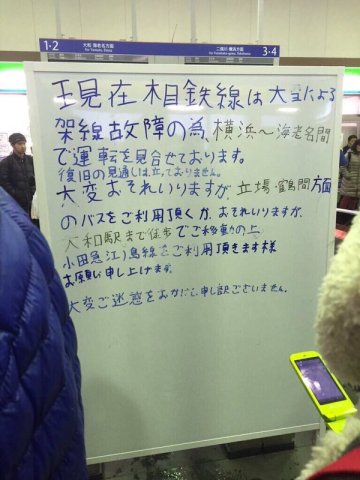 1・2 大和 海老名方面
for Yamato, Ebina
二俣川 横浜方面 3・4
for Futamata-gawa, Yokohama
現在相鉄線は大雪による
架線故障の為、横浜〜海老名間
で運転を見合せております。
復旧の見通しは立っておりません。
大変おそれいりますが、立場・鶴間方面
のバスをご利用頂くか、おそれいりますが、
大和駅まで徒歩でご移動の上、
小田急江ノ島線をご利用頂きます様
お願い申し上げます。
大変ご迷惑をおかけし申し訳ございません。